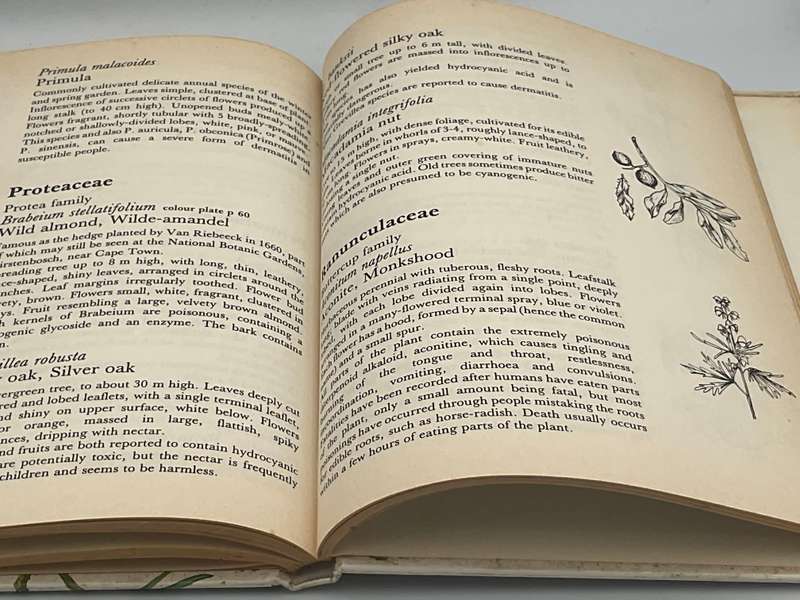 Primula malacoides
Primula
Commonly cultivated delicate annual species of the winter
and spring garden. Leaves simple, clustered at base of
Inflorescence of successive circlets of flowers produced up a
long stalk (to 40 cm high). Unopened buds mealy-white.
Flowers fragrant, shortly tubular with 5 broadly-spreading
notched or shallowly-divided lobes, white, pink, or mauve.
This species and also P. auricula, P. obconica (Primrose) and
P. sinensis, can cause a severe form of dermatitis in
susceptible people.
Proteaceae
Protea family
Brabeium stellatifolium colour plate p 60
Wild almond, Wilde-amandel
Famous as the hedge planted by Van Riebeeck in 1660, part
of which may still be seen at the National Botanic Gardens,
Kirstenbosch, near Cape Town.
reading tree up to 8 m high, with long, thin, leathery,
ce-shaped, shiny leaves, arranged in circlets around the
nches. Leaf margins irregularly toothed. Flower bud
vety, brown. Flowers small, white, fragrant, clustered in
ys. Fruit resembling a large, velvety brown almond.
h kernels of Brabeium are poisonous, containing a
nogenic glycoside and an enzyme. The bark contains
n.
illea robusta
oak, Silver oak
vergreen tree, to about 30 m high. Leaves deeply cut
red and lobed leaflets, with a single terminal leaflet,
nd shiny on upper surface, white below. Flowers
or orange, massed in large, flattish, spiky
nces, dripping with nectar.
nd fruits are both reported to contain hydrocyanic
are potentially toxic, but the nectar is frequently
children and seems to be harmless.
banksii
flowered silky oak
small tree up to 6 m tall, with divided leaves.
red flowers are massed into inflorescences up
has also yielded hydrocyanic acid and is
dangerous.
species are reported to cause dermatitis.
integrifolia
acadamia nut
15 m high, with dense foliage, cultivated for its edible
borne in whorls of 3-4, roughly lance-shaped, to
long. Flowers in sprays, creamy-white. Fruit leathery,
ing a single nut.
eaves and outer green covering of immature nuts
hydrocyanic acid. Old trees sometimes produce bitter
which are also presumed to be cyanogenic.
Ranunculaceae
ttercup family
nitum napellus
conite, Monkshood
aceous perennial with tuberous, fleshy roots. Leafstalk
blade with veins radiating from a single point, deeply
with each lobe divided again into lobes. Flowers
nged in a many-flowered terminal spray, blue or violet.
flower has a hood, formed by a sepal (hence the common
and a small spur.
parts of the plant contain the extremely poisonous
terpenoid alkaloid, aconitine, which causes tingling and
of the tongue and throat, restlessness,
ordination, vomiting, diarrhoea and convulsions.
have been recorded after humans have eaten parts
the plant, only a small amount being fatal, but most
poisonings have occurred through people mistaking the roots
for edible roots, such as horse-radish. Death usually occurs
within a few hours of eating parts of the plant.